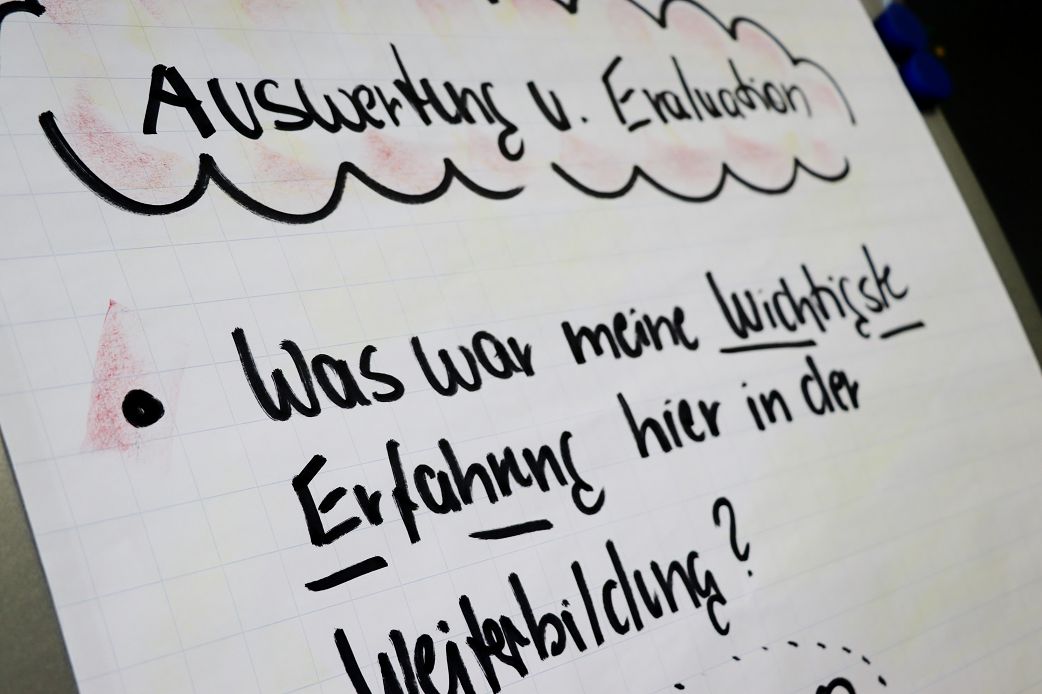 Auswertung u. Evaluation
• Was war meine Wichtigste
Erfahrung hier in der
Weiterbildung?